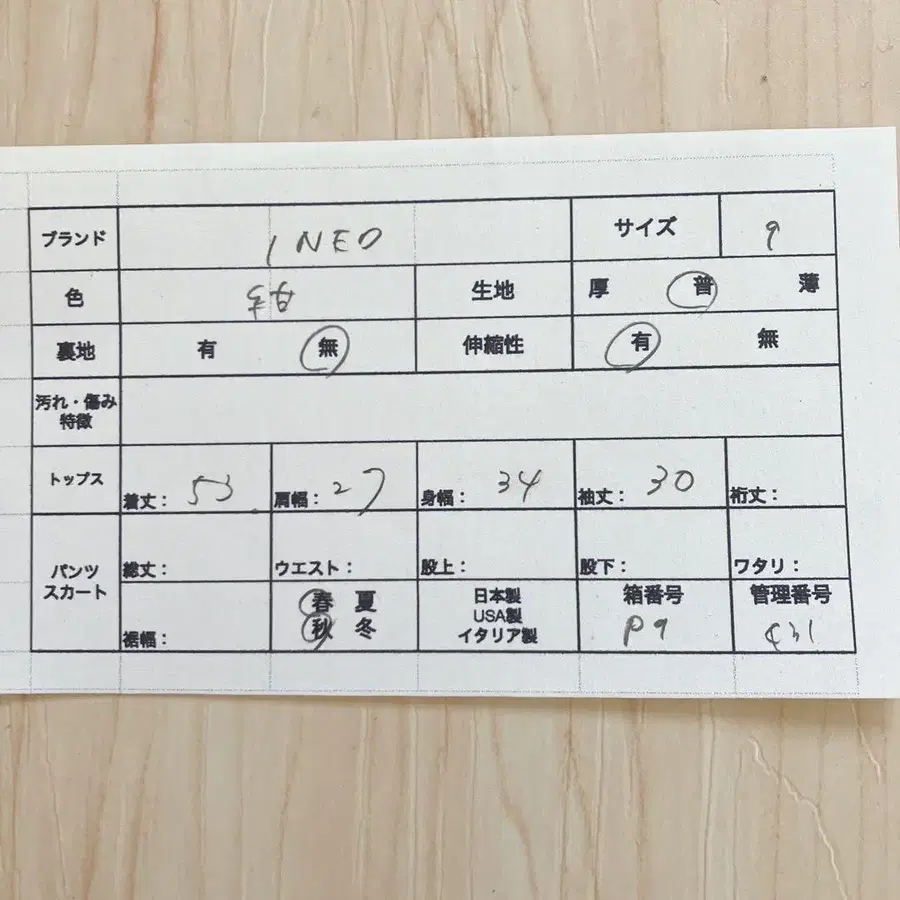 ブランド INEO サイズ 9
色 生地 厚 普 薄
裏地 有 無 伸縮性 有 無
汚れ・傷み
特徴
トップス 着丈： 53 肩幅： 27 身幅： 34 袖丈： 30 裄丈：
パンツ
スカート
総丈： ウエスト： 股上： 股下： ワタリ：
裾幅：
春 夏
秋 冬
日本製
USA製
イタリア製
箱番号
P9
管理番号